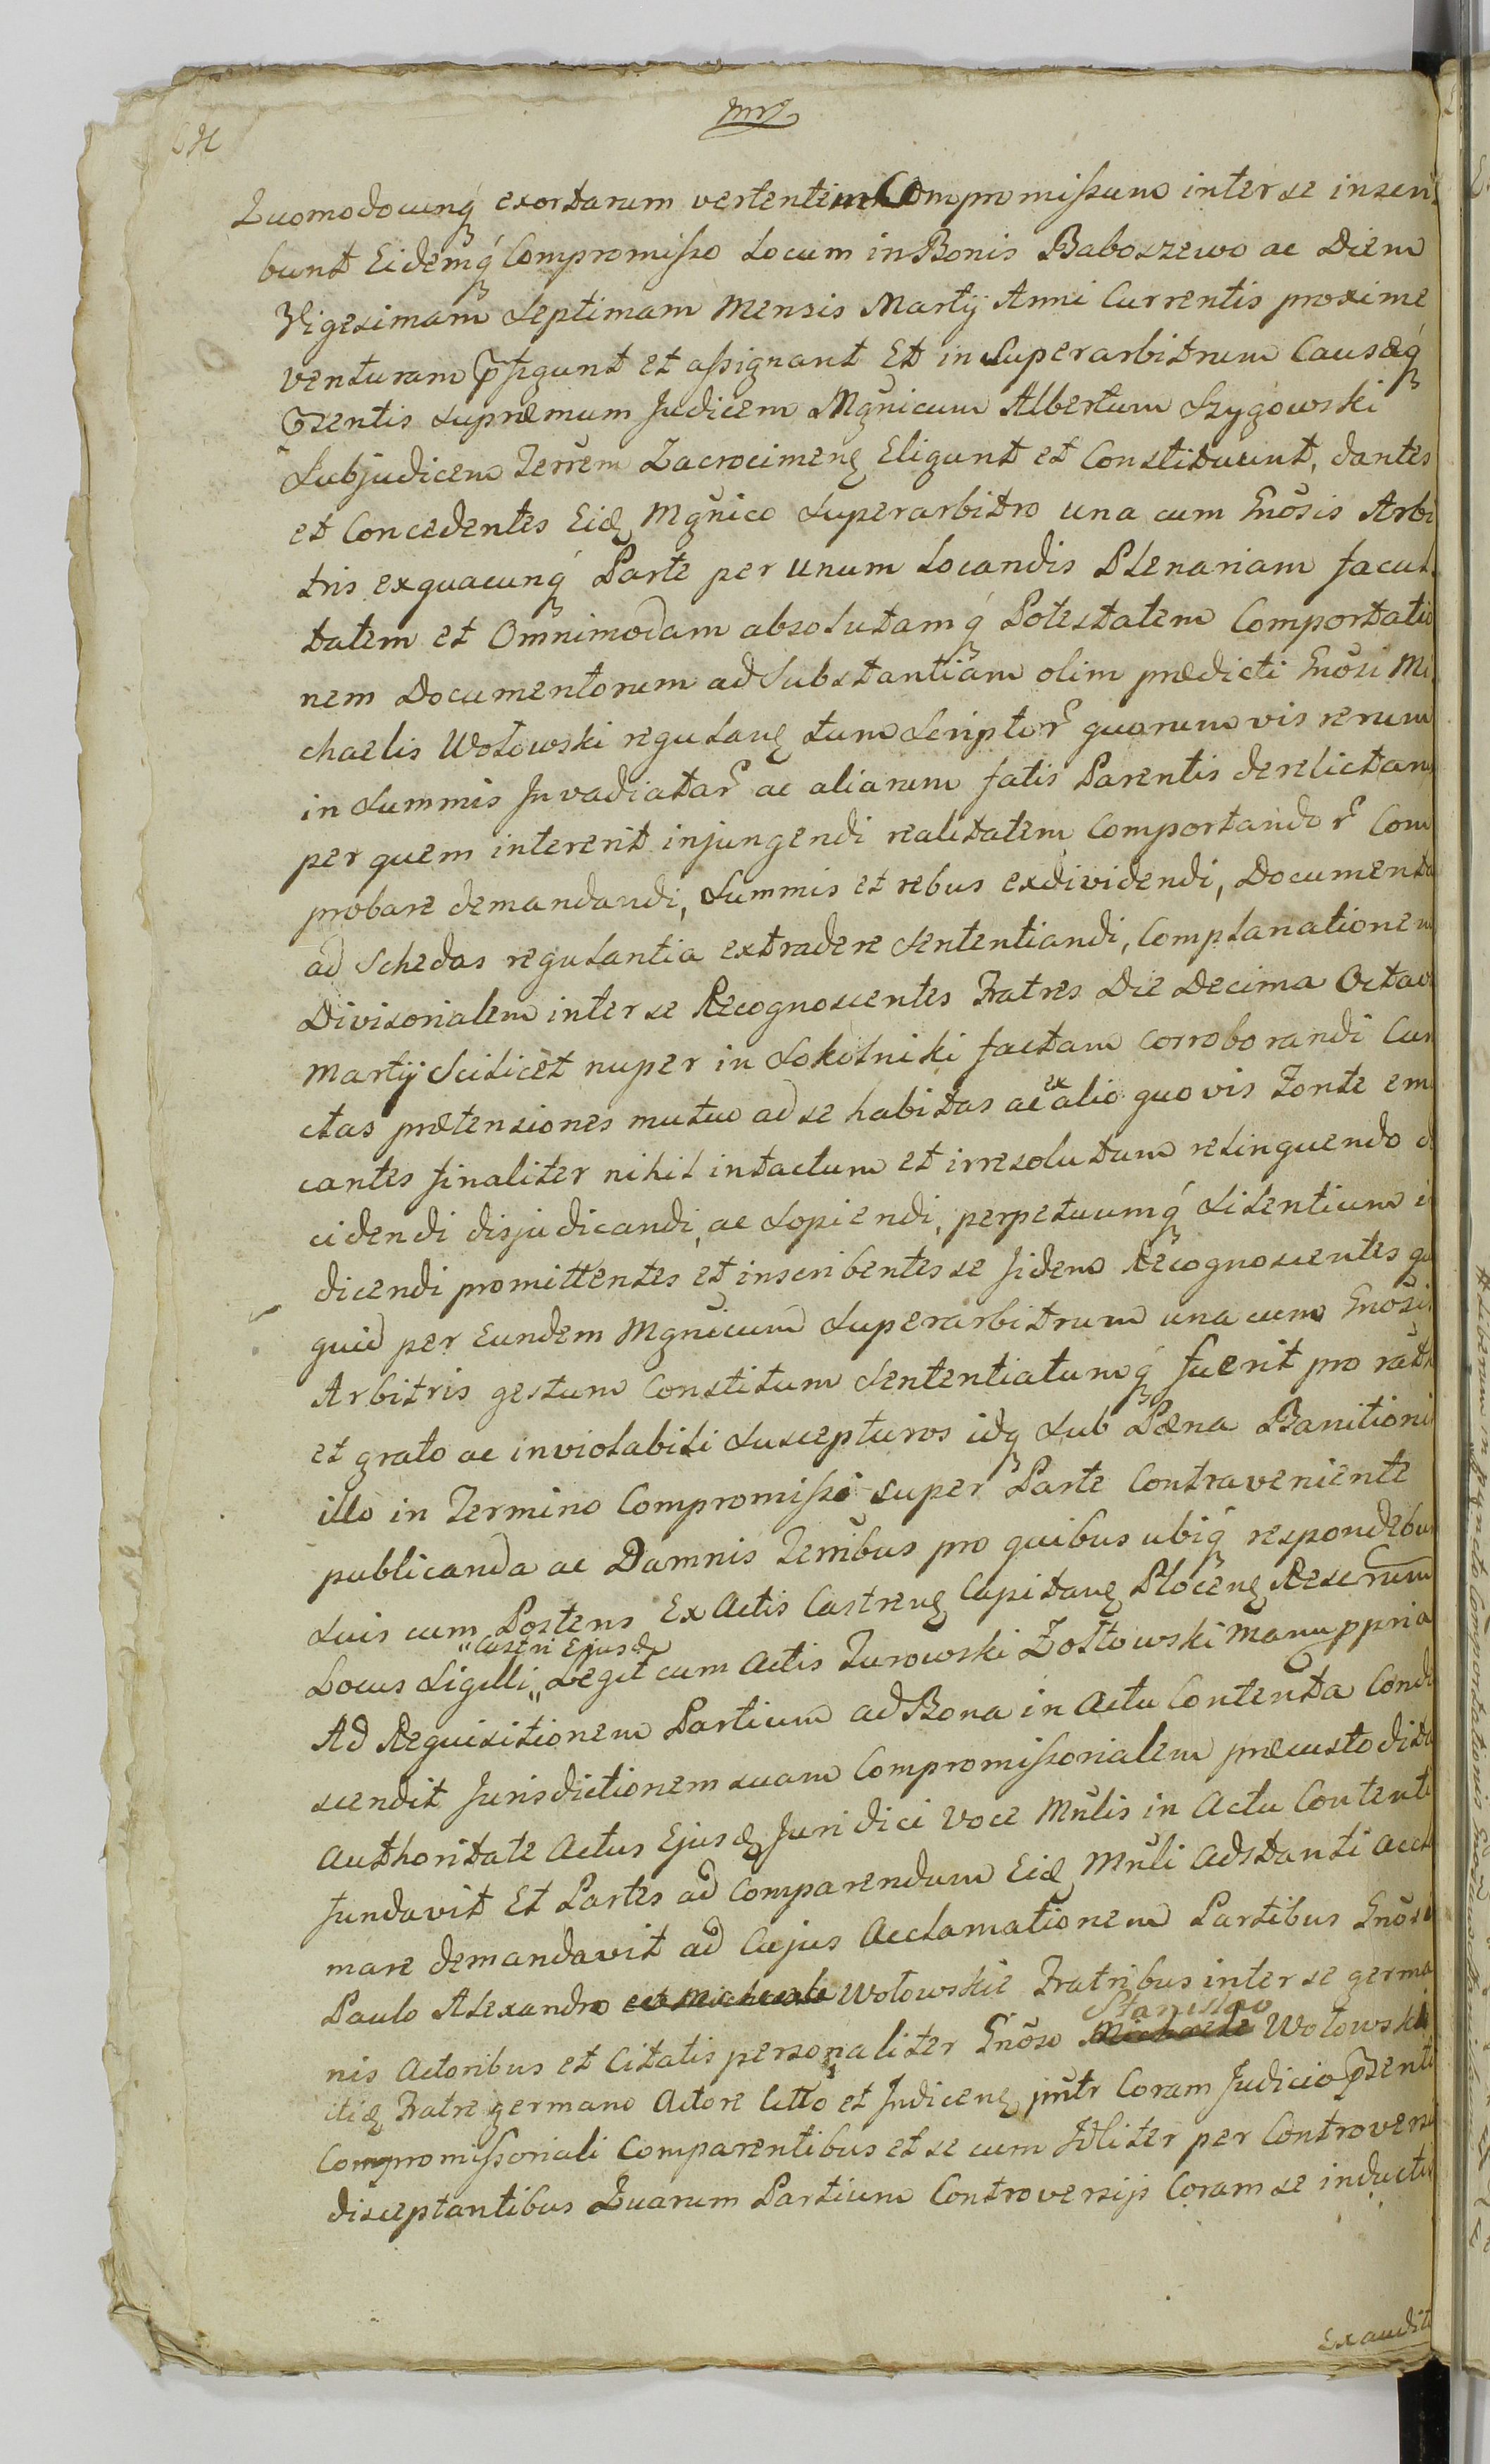 Quomodocunq́ exortarum vertentium Compromissum inter se inscri
bunt Eidemq́ Compromisso Locum in Bonis Baboszewo ac Diem
Vigesimam Septimam Mensis Martij Anni Currentis proxime
venturam pfigunt et assignant Et in Superarbitrum Causæq́
pzentis Supremum Judicem Mgnicum Albertum Szygowski
Subjudicem Terrem Zacrocimenę Eligunt et Constituunt, dantes
et Concedentes Eidę Mgnico Superarbitro una cum Gnosis Arbi
tris ex quacunq́ Parte per unum Locandis Plenariam facul
tatem et Omnimodam absolutamq́ Potestatem Comportatio
nem Documentorum ad Substantiam olim prædicti Gnosi Mi
chaelis Wołowski regulanę tum Scriptor quorumvis rerum
in Summis Invadiatar ac aliarum fatis Parentis derelictam
per quem intererit injungendi realitatem Comportandor Com
probare demandandi, Summis et rebus exdividendi, Documenta
ad Schedas regulantia extradere Sententiandi, Complanationem
Divisorialem inter se Recognoscentes Fratres Die Decima Octav
Martij Scilicet nuper in Sokolniki factam corroborandi Cun
ctas prætensiones mutuo ad se habitas ac ex alio quovis Fonte em
cantes finaliter nihil intactum et irresolutum relinquendo d
cidendi disjudicandi, ac Sopiendi, perpetuumq́ Silentium i
dicendi promittentes et inscribentes se fidem Recognoscentes qu
quid per Eundem Mgnicum Superarbitrum una cum Gnosis
Arbitris gestum Constitum Sententiatumq́ fuerit pro rat
et grato ac inviolabili Suscepturos idq Sub Pæna Banitioni
illo in Termino Compromissi super Parte Contraveniente
publicanda ac Damnis Terribus pro quibus ubiq́ respondebu
Suis cum Posteris Ex Actis Castrenę Capitanę Plocenę Reserum
"Castri Ejusdę
Locus Sigilli " Legit cum Actis Turowski Zołtowski Manu ppria
Ad Requisitionem Partium ad Bona in Actu Contenta Conde
scendit Jurisdictionem suam Compromissorialem præcustodita
Authoritate Actus Ejusdę Juridici Voce Mnlis in Actu Content
fundavit Et Partes ad Comparendum Eidę Mnli Adstanti accla
mare demandavit ad Cujus Acclamationem Partibus Gnosi
Paulo Alexandro et Michaele Wołowskie Fratribus inter se germa
Stanislao
nis Actoribus et Citatis personaliter Gnoso Michaele Wołowski
itidę Fratre germano Actore Citto et Judicenę pntr Coram Judicio pzenti
Compromissoriali Comparentibus et se cum Jdliter per Controvers
disceptantibus Quarum Partium Controversijs Coram se inductis
Exaudit